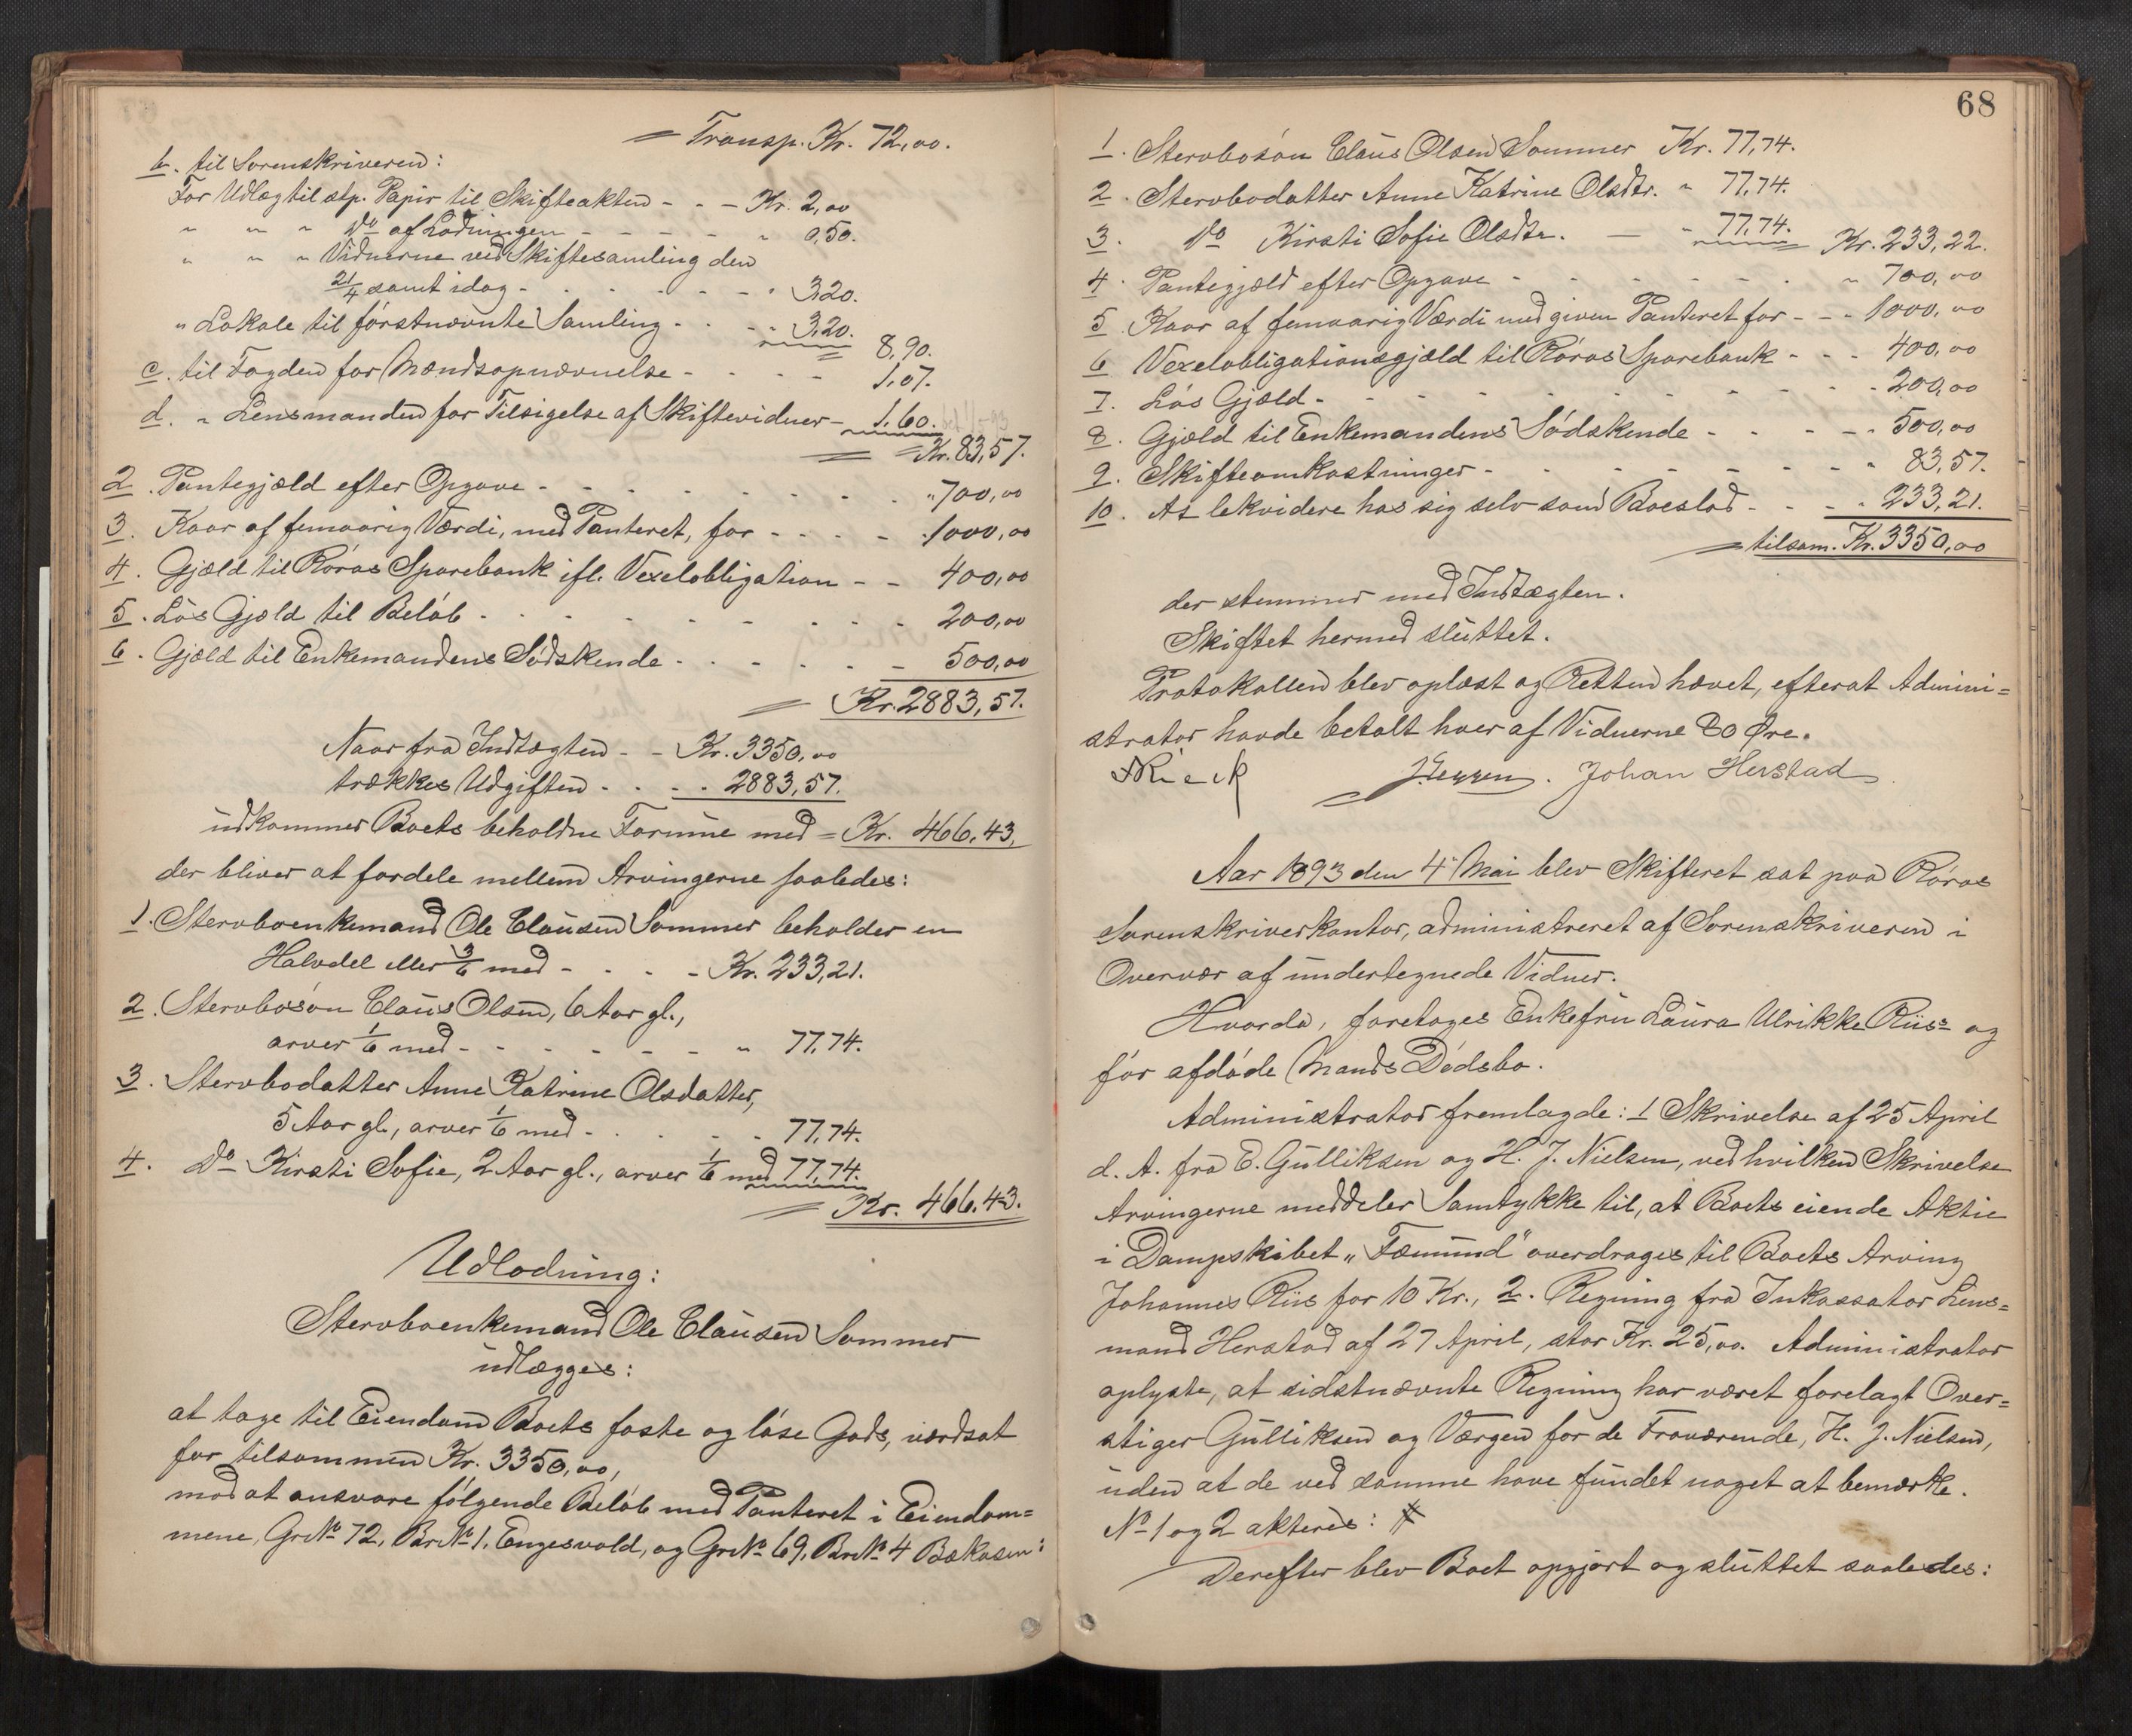 Transp. Kr. 72,00.
b. til Sorenskriveren:
For Udlæg til stp. Papir til Skifteakten - - - Kr. 2,00
" " " Do af Lodningen - - - - - " 0,50.
" " " Vidnerne ved Skiftesamling den
21/4 samt idag - - - - - - - " 3,20.
" Lokale til førstnævnte Samling - - - " 3,20.
8,90.
c. til Fogden for Mændsopnævnelse - - - - 1,07.
d. " Lensmanden for Tilsigelse af Skiftevidner - 1,60.
= Kr. 83,57.
2. Pantegjæld efter Opgave - - - - - - - - " 700,00
3. Kaar af femaarig Værdi, med Panteret, for - - - - 1000,00
4. Gjæld til Røros Sparebank ifl. Vexelobligation - - 400,00
5. Løs Gjæld til Beløb - - - - - - - - 200,00
6. Gjæld til Enkemandens Sødskende - - - - - - 500,00
= Kr. 2883,57.
Naar fra Indtægten - - Kr. 3350,00
trækkes Udgiften - - - - 2883,57.
udkommer Boets beholdne Formue med = Kr. 466,43,
der bliver at fordele mellem Arvingerne saaledes:
1. Stervboenkemand Ole Clausen Sommer beholder en
Halvdel eller 3/6 med - - - - Kr. 233,21.
2. Stervbosøn Claus Olsen, 6 Aar gl.,
arver 1/6 med - - - - - - - " 77,74.
3. Stervbodatter Anne Katrine Olsdatter,
5 Aar gl., arver 1/6 med - - - - - 77,74.
4. Do Kirsti Sofie, 2 Aar gl., arver 1/6 med 77,74.
= Kr. 466,43.
Udlodning:
Stervboenkemand Ole Clausen Sommer
udlægges:
at tage til Eiendom Boets faste og løse Gods, værdsat
for tilsammen Kr. 3350,00,
mod at ansvare følgende Beløb med Panteret i Eiendom=
mene, Gr No 72, Br No 1, Engesvold, og Gr No 69, Br No 4 Bækosen:
68
1. Stervbosøn Claus Olsen Sommer Kr. 77,74.
2. Stervbodatter Anne Katrine Olsdtr. " 77,74.
3. Do Kirsti Sofie Olsdtr. - " 77,74. Kr. 233,22.
4. Pantegjæld efter Opgave - - - - - - " 700,00
5. Kaar af femaarig Værdi med given Panteret for - - - 1000,00
6. Vexelobligationsgjæld til Røros Sparebank - - - 400,00
7. Løs Gjæld - - - - - - - - - - 200,00
8. Gjæld til Enkemandens Sødskende - - - - - 500,00
9. Skifteomkostninger - - - - - - - - " 83,57.
10. At lekvidere hos sig selv som Boeslod - - - - 233,21.
= tilsam. Kr. 3350,00
der stemmer med Indtægten.
Skiftet hermed sluttet.
Protokollen blev oplæst og Retten hævet, efterat Admini=
strator havde betalt hver af Vidnerne 80 Øre.
Johan Herstad
Aar 1893 den 4 Mai blev Skifteret sat paa Røros
Sorenskriverkontor, administreret af Sorenskriveren i
Overvær af undertegnede Vidner.
Hvorda, foretoges Enkefru Laura Ulrikke Riis's og
før afdøde Mands Dødsbo.
Administrator fremlagde: 1 Skrivelse af 25 April
d. A. fra E. Gulliksen og H. J. Nielsen, ved hvilken Skrivelse
Arvingerne meddeler Samtykke til, at Boets eiende Aktie
i Dampskibet "Fæmund" overdrages til Boets Arving
Johannes Riis for 10 Kr., 2. Regning fra Inkassator Lens=
mand Herstad af 27 April, stor Kr. 25,00. Administrator
oplyste, at sidstnævnte Regning har været forelagt Over=
stiger Gulliksen og Værgen for de Fraværende, H. J. Nielsen,
uden at de ved samme have fundet noget at bemærke.
No 1 og 2 akteres: #
Derefter blev Boet opgjort og sluttet saaledes: